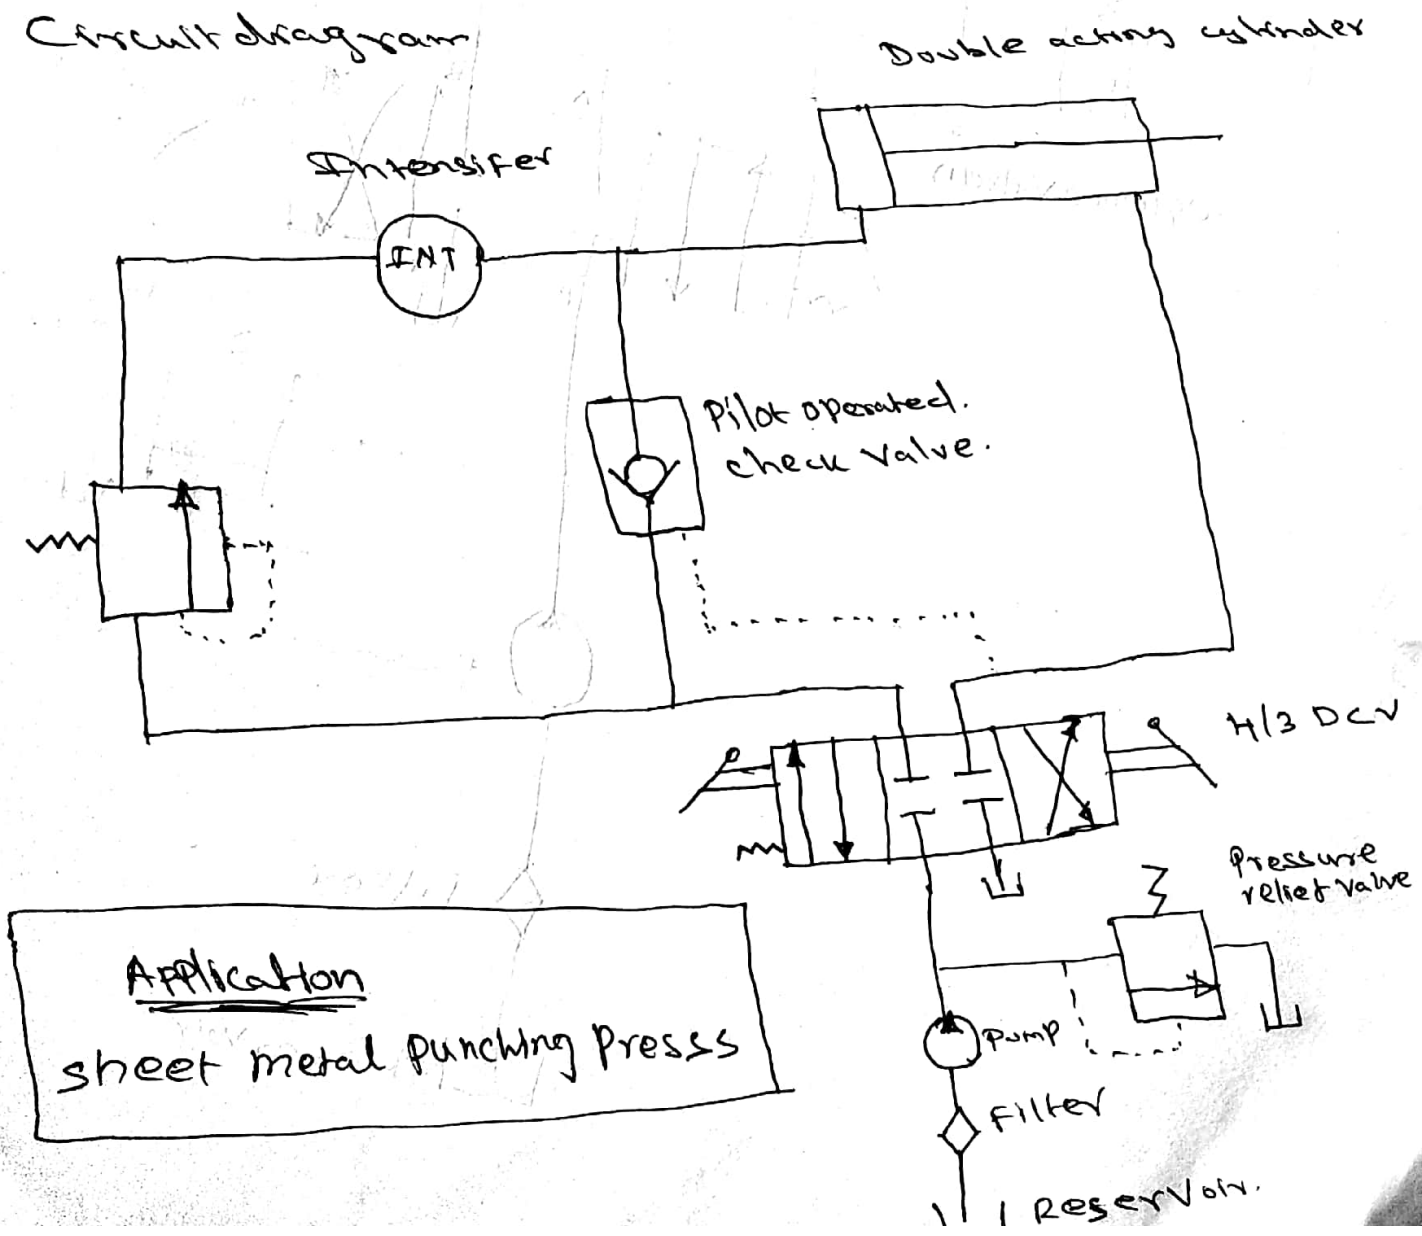 Circuit diagram
Double acting cylinder
Intensifer
INT
Pilot operated.
check valve.
4/3 DCV
Pressure
relief valve
Application
sheet metal punching Presss
Pump
Filter
Reservoir.